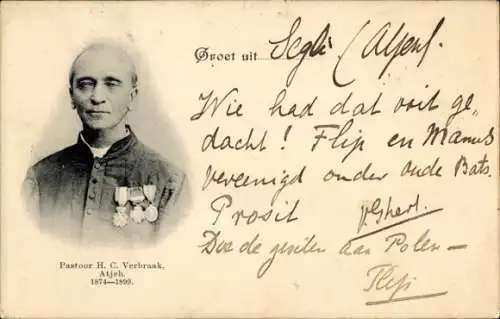 Groet uit Segli (Atjeh).
Wie had dat ooit ge-
dacht! Flip en Manus
vereenigd onder oude Bats.
Prosit
Doe de groeten aan Polen —
Flip
Pastoor H. C. Verbraak,
Atjeh.
1874—1899.